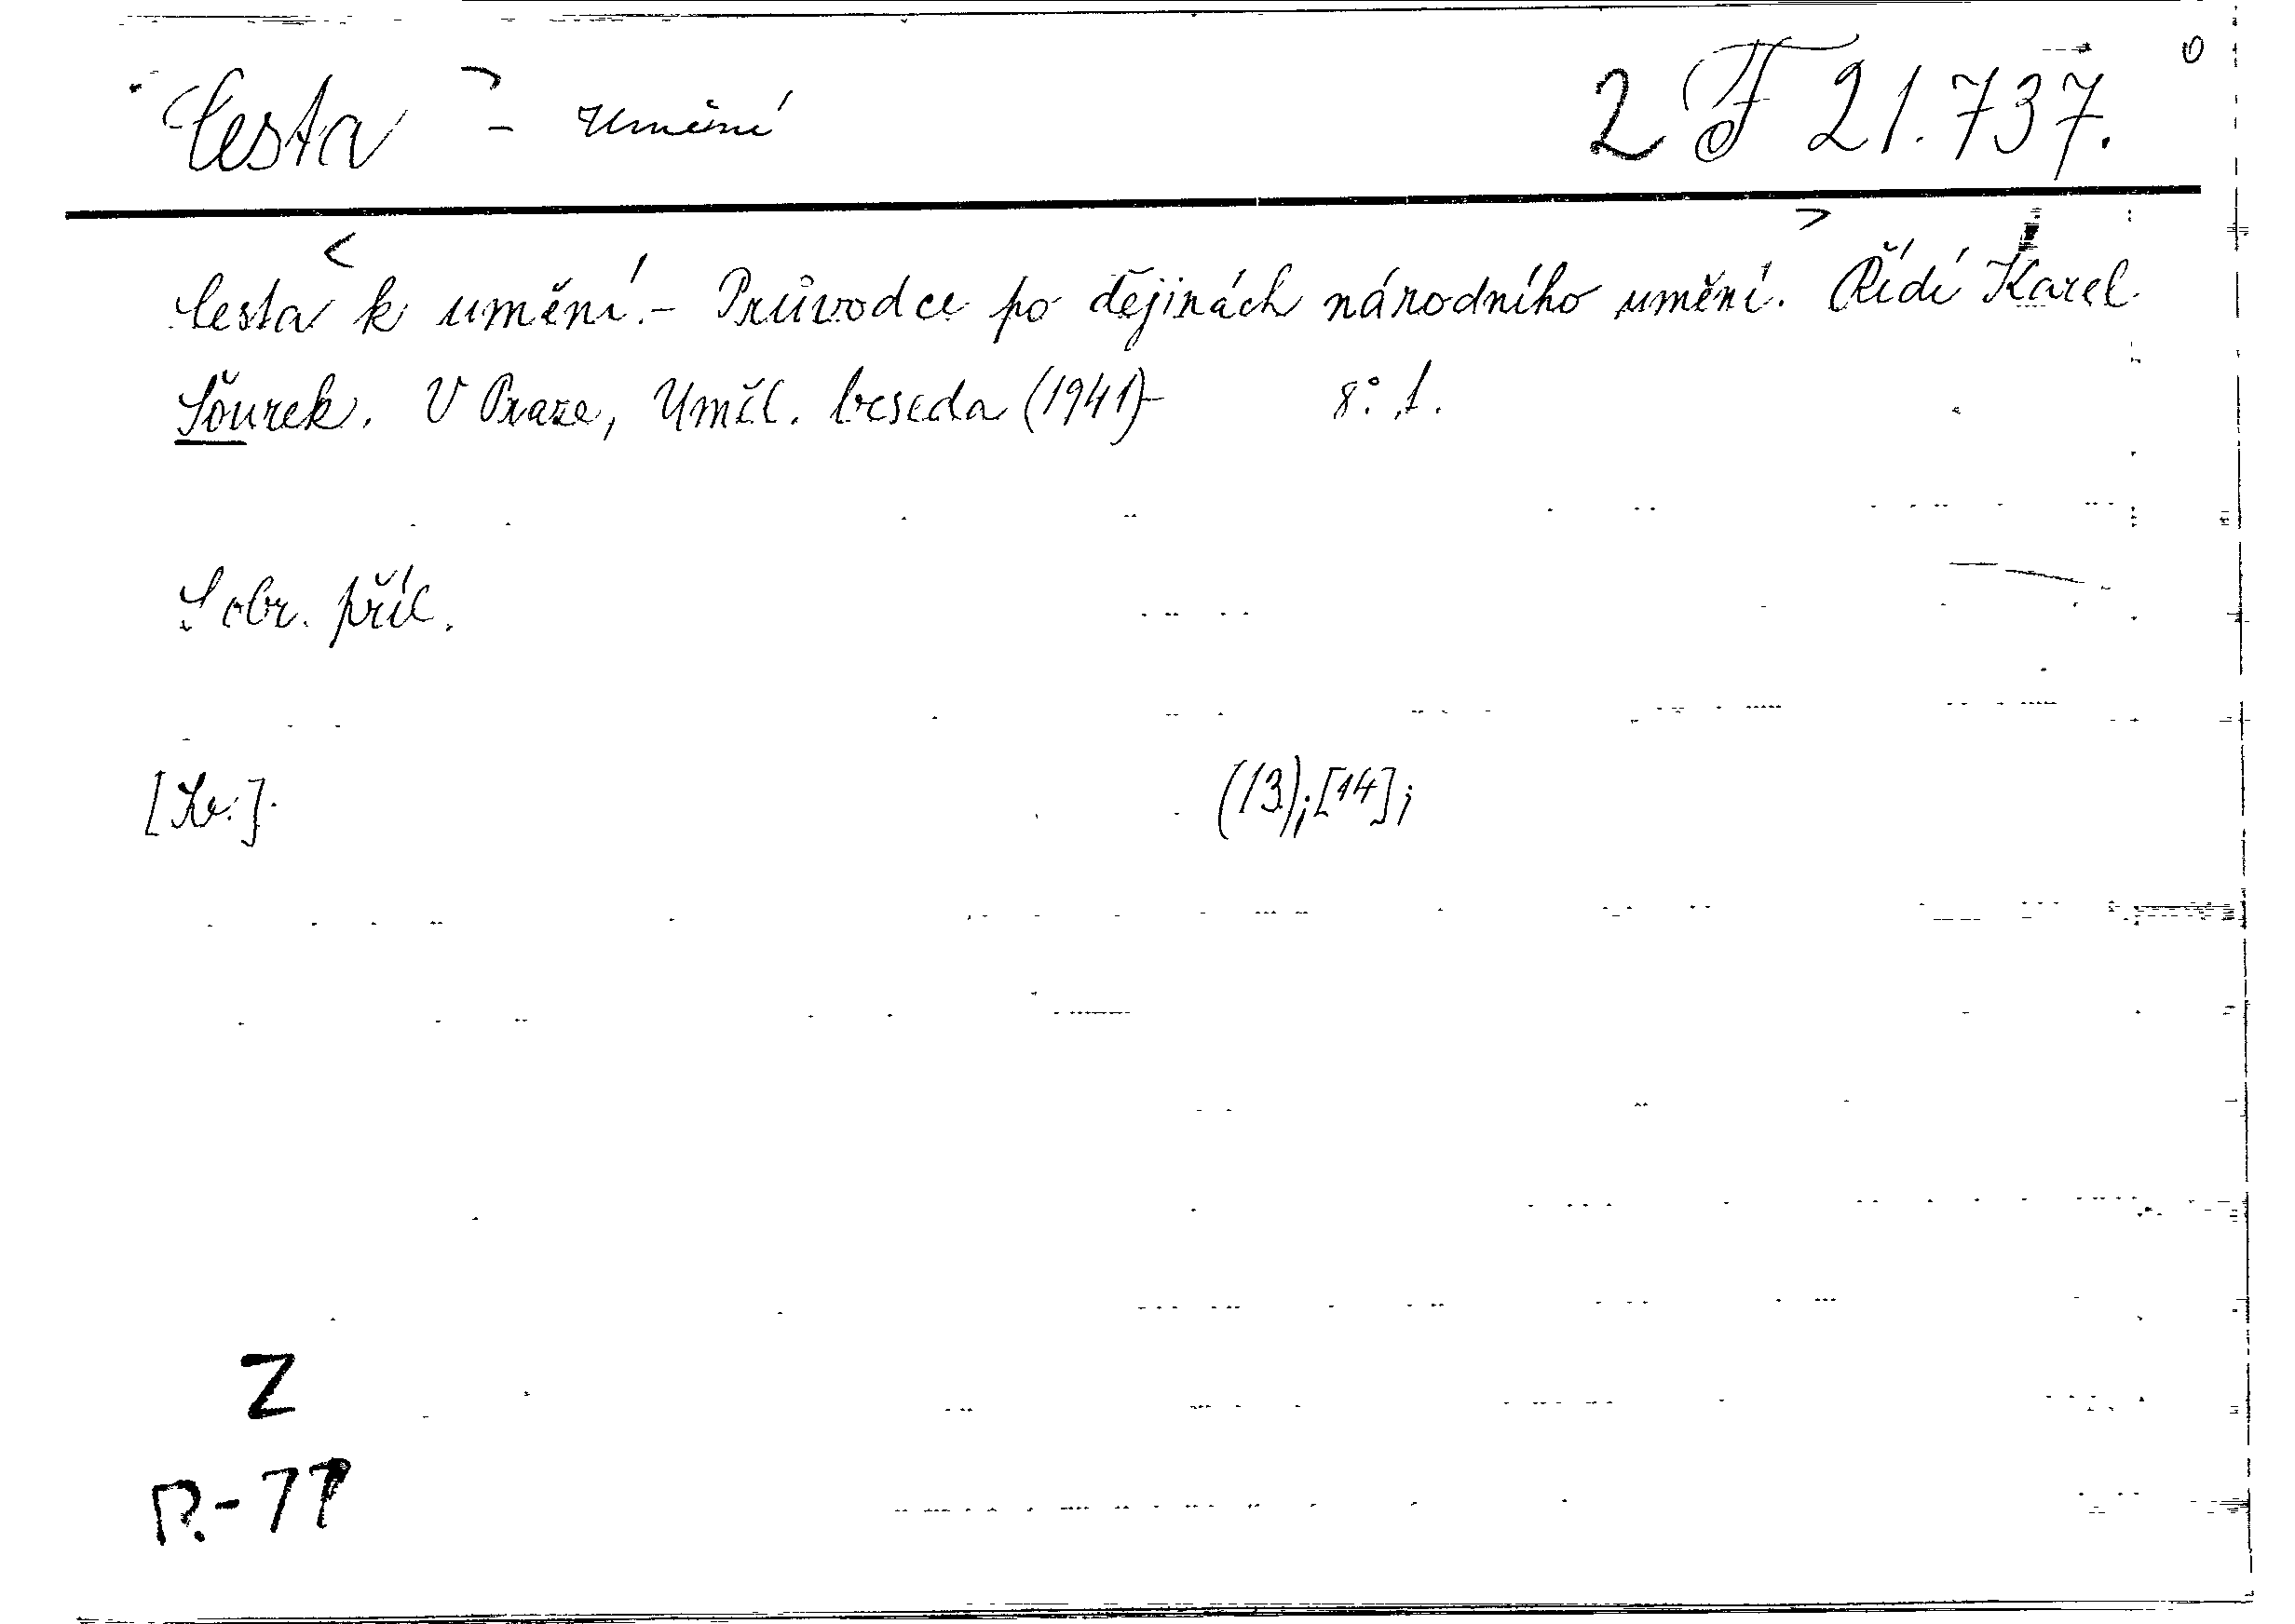 Cesta - umění 2 F 21.737.
Cesta k umění.- Průvodce po dějinách národního umění. Řídí Karel
Šourek. V Praze, Uměl. beseda (1941)- 8°. 1.
S obr. příl.
(13);[14];
Z